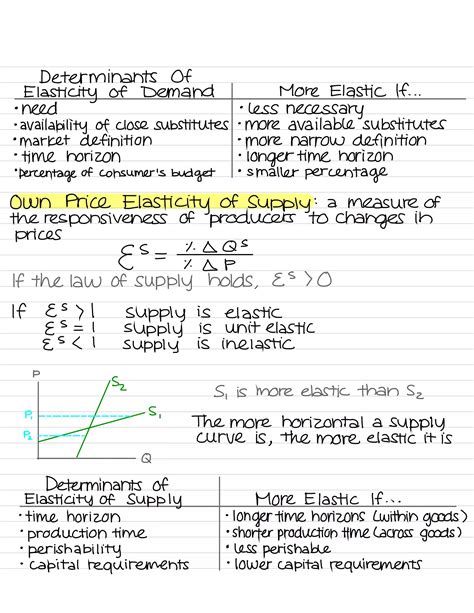 Determinants Of
Elasticity of Demand | More Elastic If...
• need | • less necessary
• availability of close substitutes | • more available substitutes
• market definition | • more narrow definition
• time horizon | • longer time horizon
• percentage of consumer's budget | • smaller percentage
Own Price Elasticity of Supply: a measure of
the responsiveness of producers to changes in
prices
Ɛˢ = % Δ Qˢ / % Δ P
If the law of supply holds, Ɛˢ > 0
If Ɛˢ > 1 supply is elastic
Ɛˢ = 1 supply is unit elastic
Ɛˢ < 1 supply is inelastic
P
S₂
S₁
P₁
P₂
Q
S₁ is more elastic than S₂
The more horizontal a supply
curve is, the more elastic it is
Determinants of
Elasticity of Supply | More Elastic If...
• time horizon | • longer time horizons (within goods)
• production time | • shorter production time (across goods)
• perishability | • less perishable
• capital requirements | • lower capital requirements